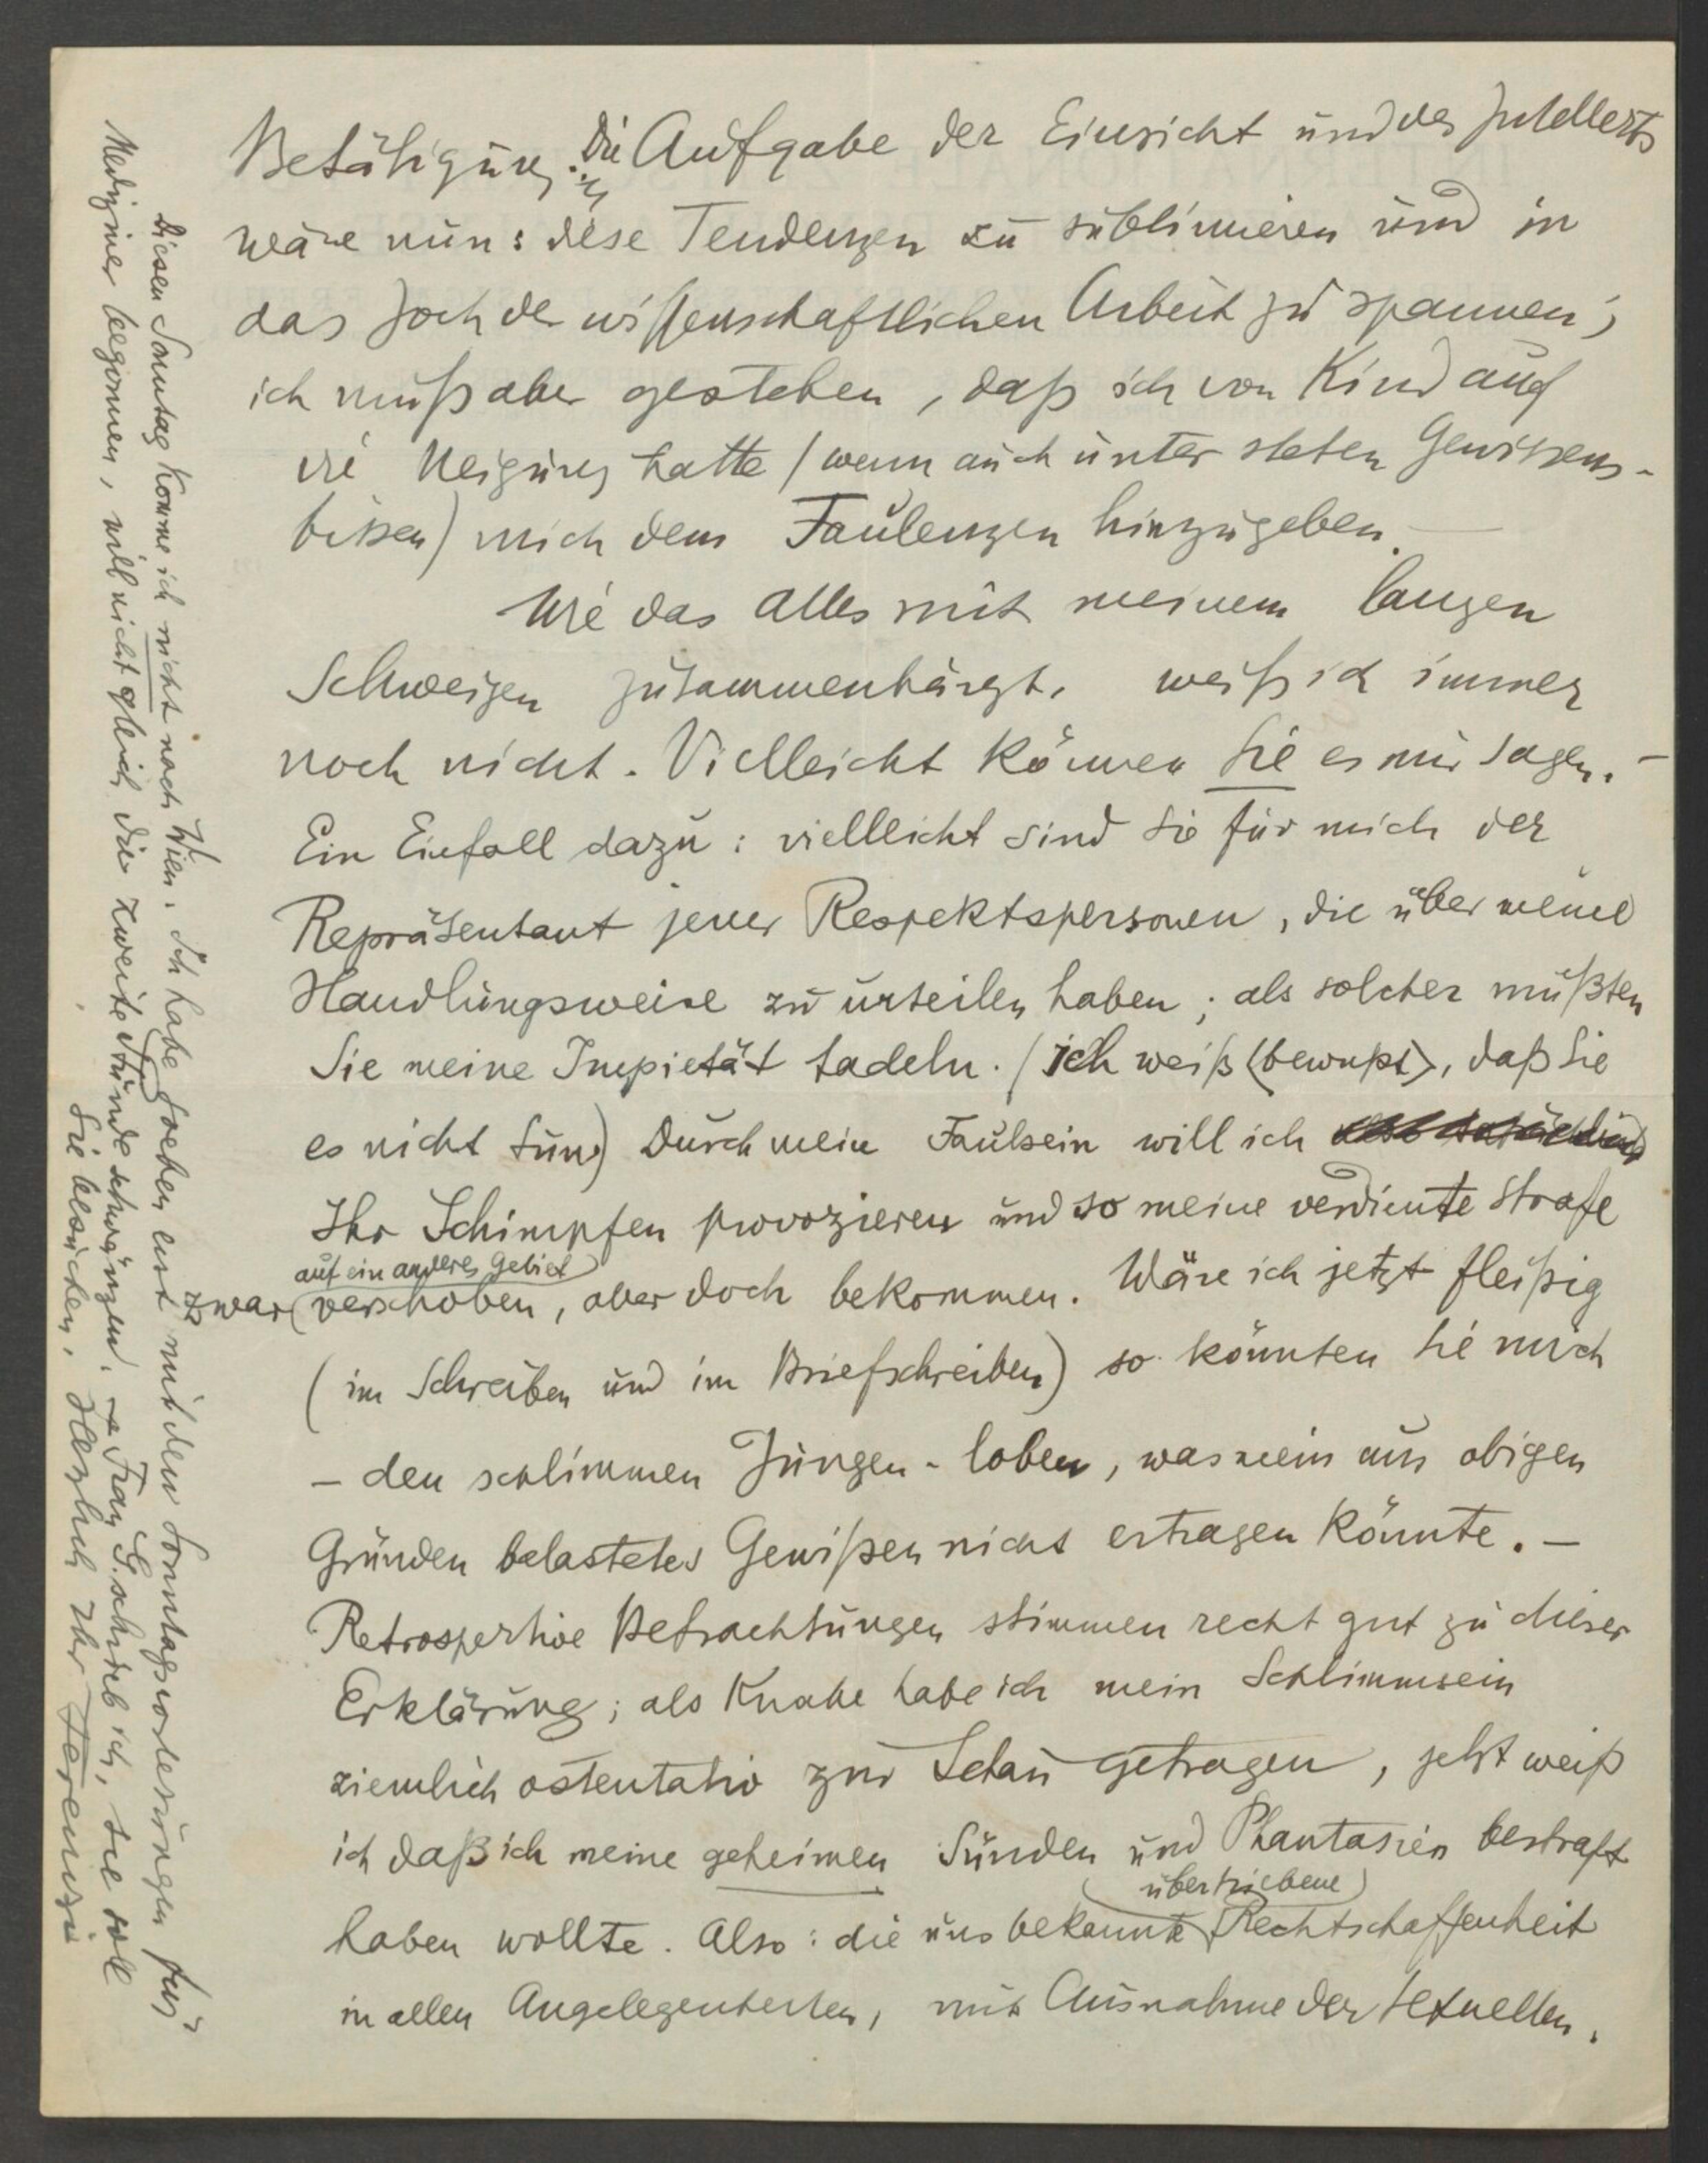 Betätigung. Die Aufgabe der Einsicht und des Intellekts
wäre nun: diese Tendenzen zu sublimieren und in
das Joch der wissenschaftlichen Arbeit zu spannen;
ich muß aber gestehen, daß ich von Kind auf
die Neigung hatte (wenn auch unter steten Gewissens-
bissen) mich dem Faulenzen hinzugeben. —
Wie das alles mit meinem langen
Schweigen zusammenhängt, weiß ich immer
noch nicht. Vielleicht können Sie es mir sagen. —
Ein Einfall dazu: vielleicht sind Sie für mich der
Repräsentant jener Respektspersonen, die über meine
Handlungsweise zu urteilen haben; als solcher müßten
Sie meine Impietät tadeln. (ich weiß <bewußt>, daß Sie
es nicht tun) Durch mein Faulsein will ich
Ihr Schimpfen provozieren und so meine verdiente Strafe
auf ein anderes Gebiet
zwar verschoben, aber doch bekommen. Wäre ich jetzt fleißig
(im Schreiben und im Briefschreiben) so könnten Sie mich
— den schlimmen Jungen - loben, was mein aus obigen
Gründen belastetes Gewißen nicht ertragen könnte. —
Retrospektive Betrachtungen stimmen recht gut zu dieser
Erklärung; als Knabe habe ich mein Schlimmsein
ziemlich ostentativ zur Schau getragen, jetzt weiß
ich daß ich meine geheimen Sünden und Phantasien bestraft
haben wollte. Also: die uns bekannte
übertriebene
Rechtschaffenheit
in allen Angelegenheiten, mit Ausnahme der sexuellen.
Diesen Sonntag komme ich nicht nach Wien. Ich habe soeben erst mit den Sonntagsvorlesungen für
Mediziner begonnen, will nicht gleich die zweite Stunde schwänzen. – Frau G. schrieb ich, sie soll
Sie besuchen. Herzlich Ihr Ferenczi